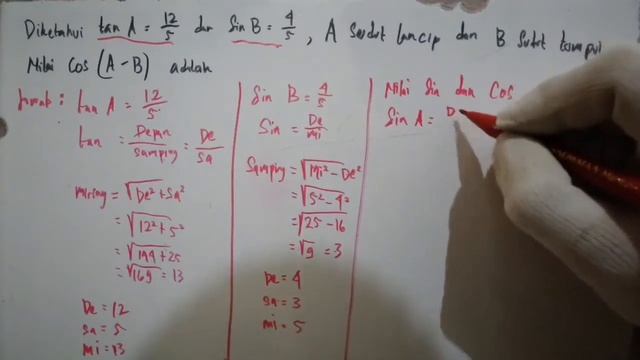 Diketahui tan A = 12/5 dan Sin B = 4/5, A Sudut lancip dan B Sudut tumpul
Nilai Cos (A - B) adalah
Jawab : tan A = 12/5
tan = Depan/samping = De/sa
miring = √De² + Sa²
= √12² + 5²
= √144 + 25
= √169 = 13
De = 12
sa = 5
mi = 13
Sin B = 4/5
Sin = De/mi
Samping = √Mi² - De²
= √5² - 4²
= √25 - 16
= √9 = 3
De = 4
sa = 3
mi = 5
Nilai Sin dan Cos
Sin A = D